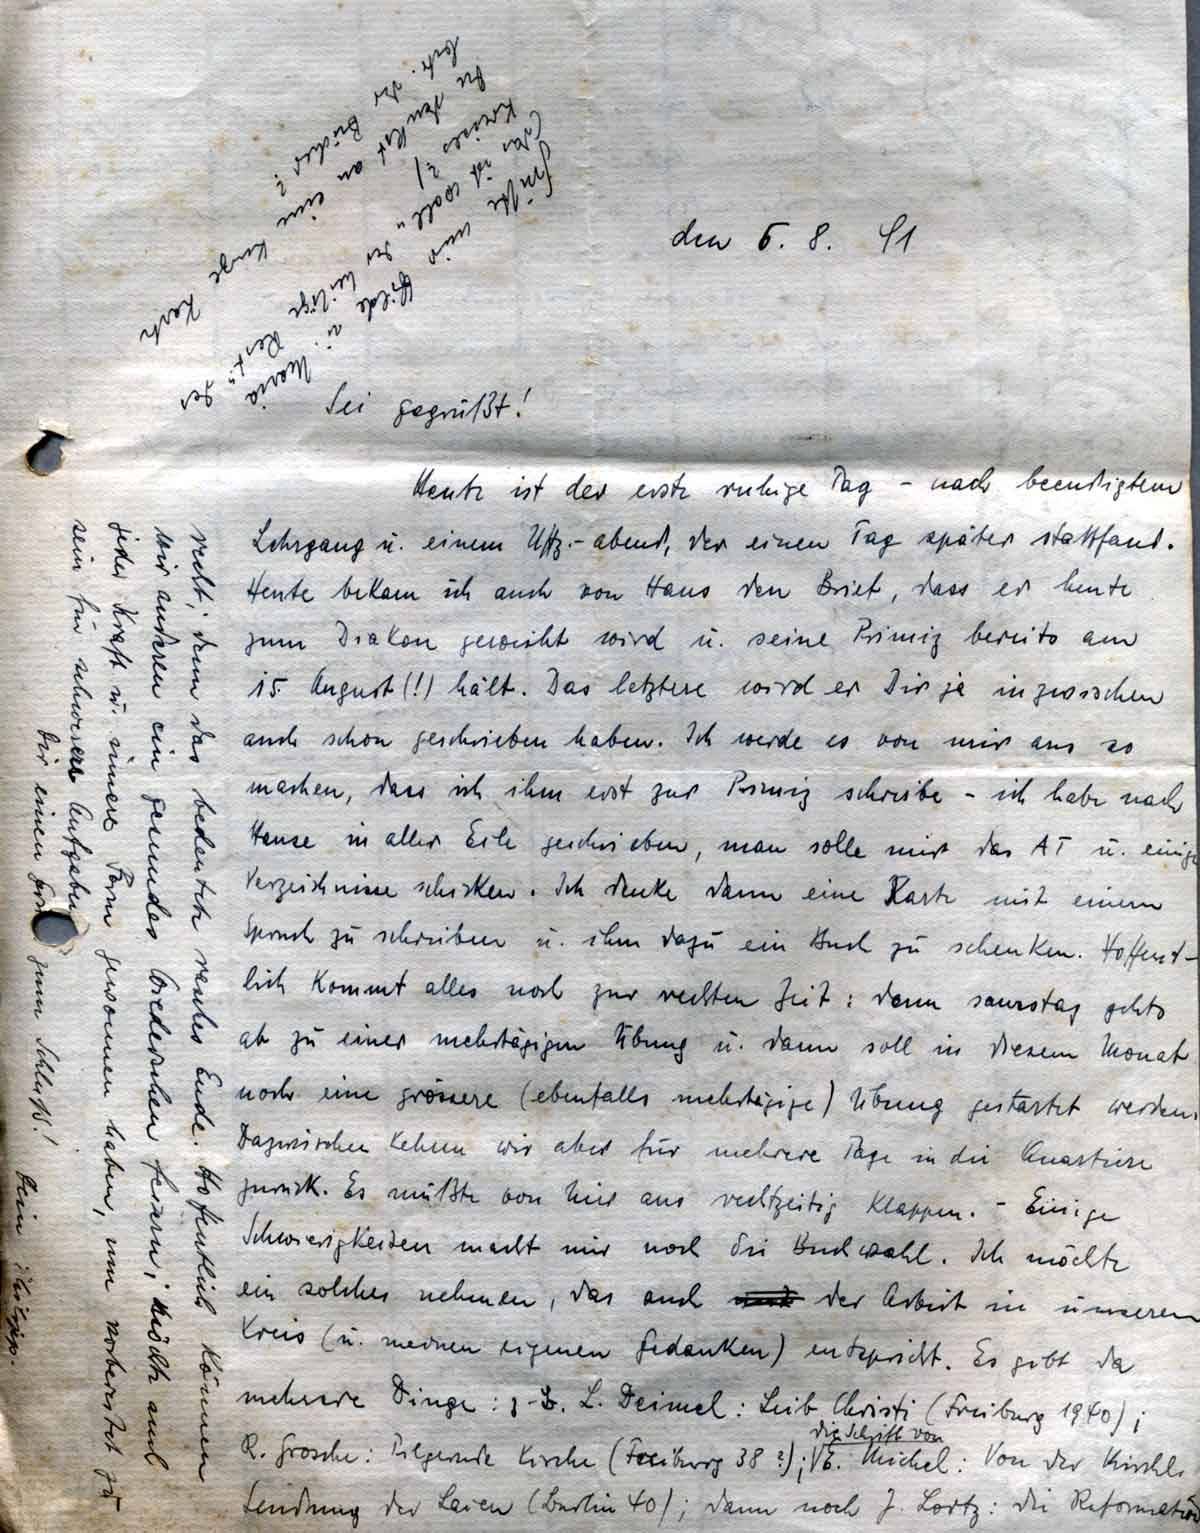 den 6. 8. 41
Sei gegrüßt!
Heute ist der erste ruhige Tag - nach beendigtem
Lehrgang u. einem Uffz.-abend, der einen Tag später stattfand.
Heute bekam ich auch von Hans den Brief, dass er heute
zum Diakon geweiht wird u. seine Primiz bereits am
15. August (!) hält. Das letztere wird er Dir ja inzwischen
auch schon geschrieben haben. Ich werde es von mir aus so
machen, dass ich ihm erst zur Primiz schreibe - ich habe nach
Hause in aller Eile geschrieben, man solle mir das AT u. einige
Verzeichnisse schicken. Ich denke dann eine Karte mit einem
Spruch zu schreiben u. ihm dazu ein Buch zu schenken. Hoffent-
lich kommt alles noch zur rechten Zeit: denn samstag gehts
ab zu einer mehrtägigen Übung u. dann soll in diesem Monat
noch eine grössere (ebenfalls mehrtägige) Übung gestartet werden.
Dazwischen kehren wir aber für mehrere Tage in die Quartiere
zurück. Es müßte von hier aus rechtzeitig klappen. - Einige
Schwierigkeiten macht mir noch die Buchwahl. Ich möchte
ein solches nehmen, das auch der Arbeit in unserem
Kreis (u. meinen eigenen Gedanken) entspricht. Es gibt da
mehrere Dinge: z.B. L. Deimel: Leib Christi (Freiburg 1940);
die Schrift von
R. Grosche: Pilgernde Kirche (Freiburg 38?); E. Michel: Von der kirchl.
Sendung der Laien (Berlin 40); dann noch J. Lortz: die Reformation
recht; denn das bedeutet rasches Ende. Hoffentlich können
wir anderen ein gesundes Wiedersehen feiern; möcht auch
jeder Kraft u. innere Form gewonnen haben, um vorbereitet zu
sein für schwere Aufgaben
Dir einen Gruß zum Schluß! Dein
Grüße mir Hilde u. Maria
(das ist wohl "der heilige Rest" des
Kreises ?)
Du denkst an eine kurze Karte
betr. der Bücher?